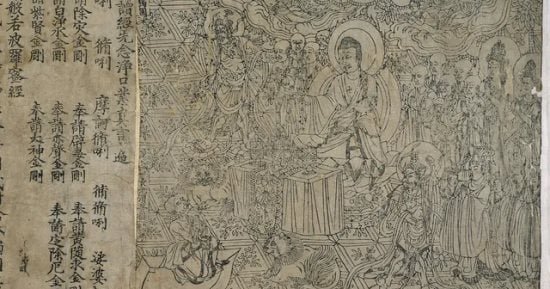 讀經先念淨口業真言 遍
脩唎 摩訶脩唎 脩脩唎 娑婆
請除災金剛 奉請辟毒金剛 奉請黃隨求金剛
請白淨水金剛 奉請赤聲金剛 奉請定除厄金
請紫賢金剛 奉請大神金剛
般若波羅蜜經